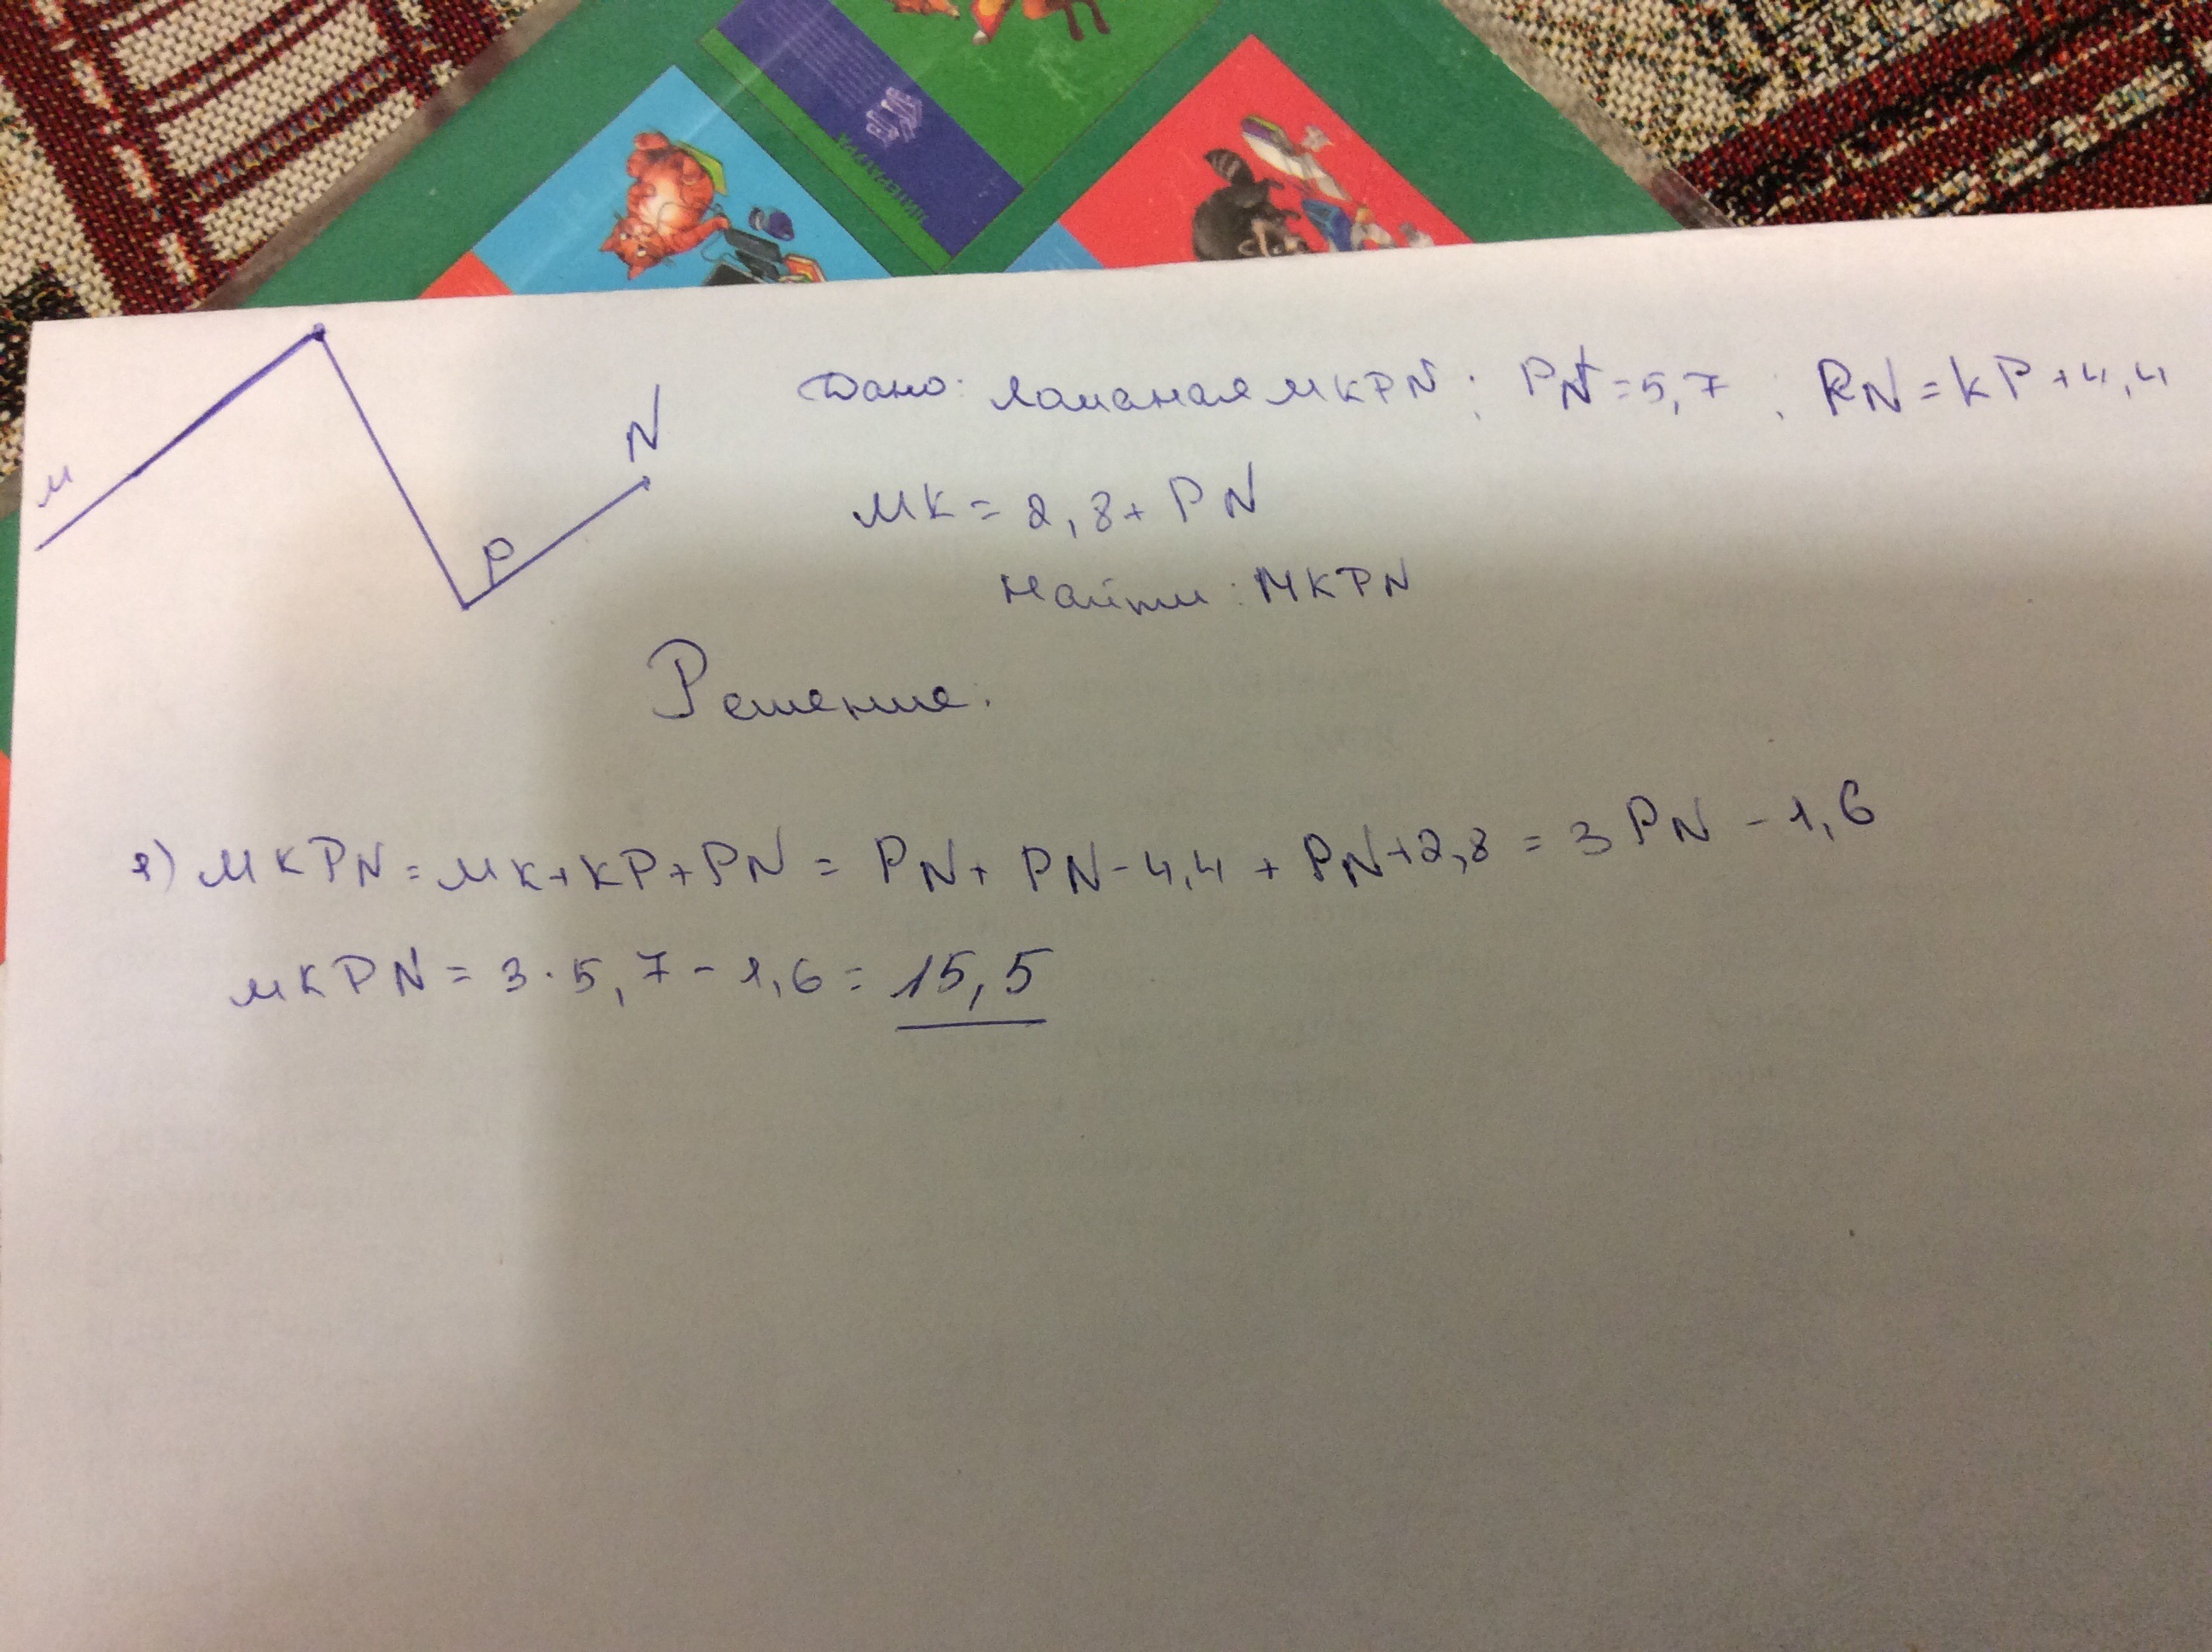 ЛИТЕРАТУРА
M
N
P
Дано: ломаная MKPN; PN=5,7; PN=KP+4,4
MK=2,8+PN
Найти: MKPN
Решение.
1) MKPN=MK+KP+PN=PN+PN-4,4+PN+2,8=3PN-1,6
MKPN=3·5,7-1,6=15,5